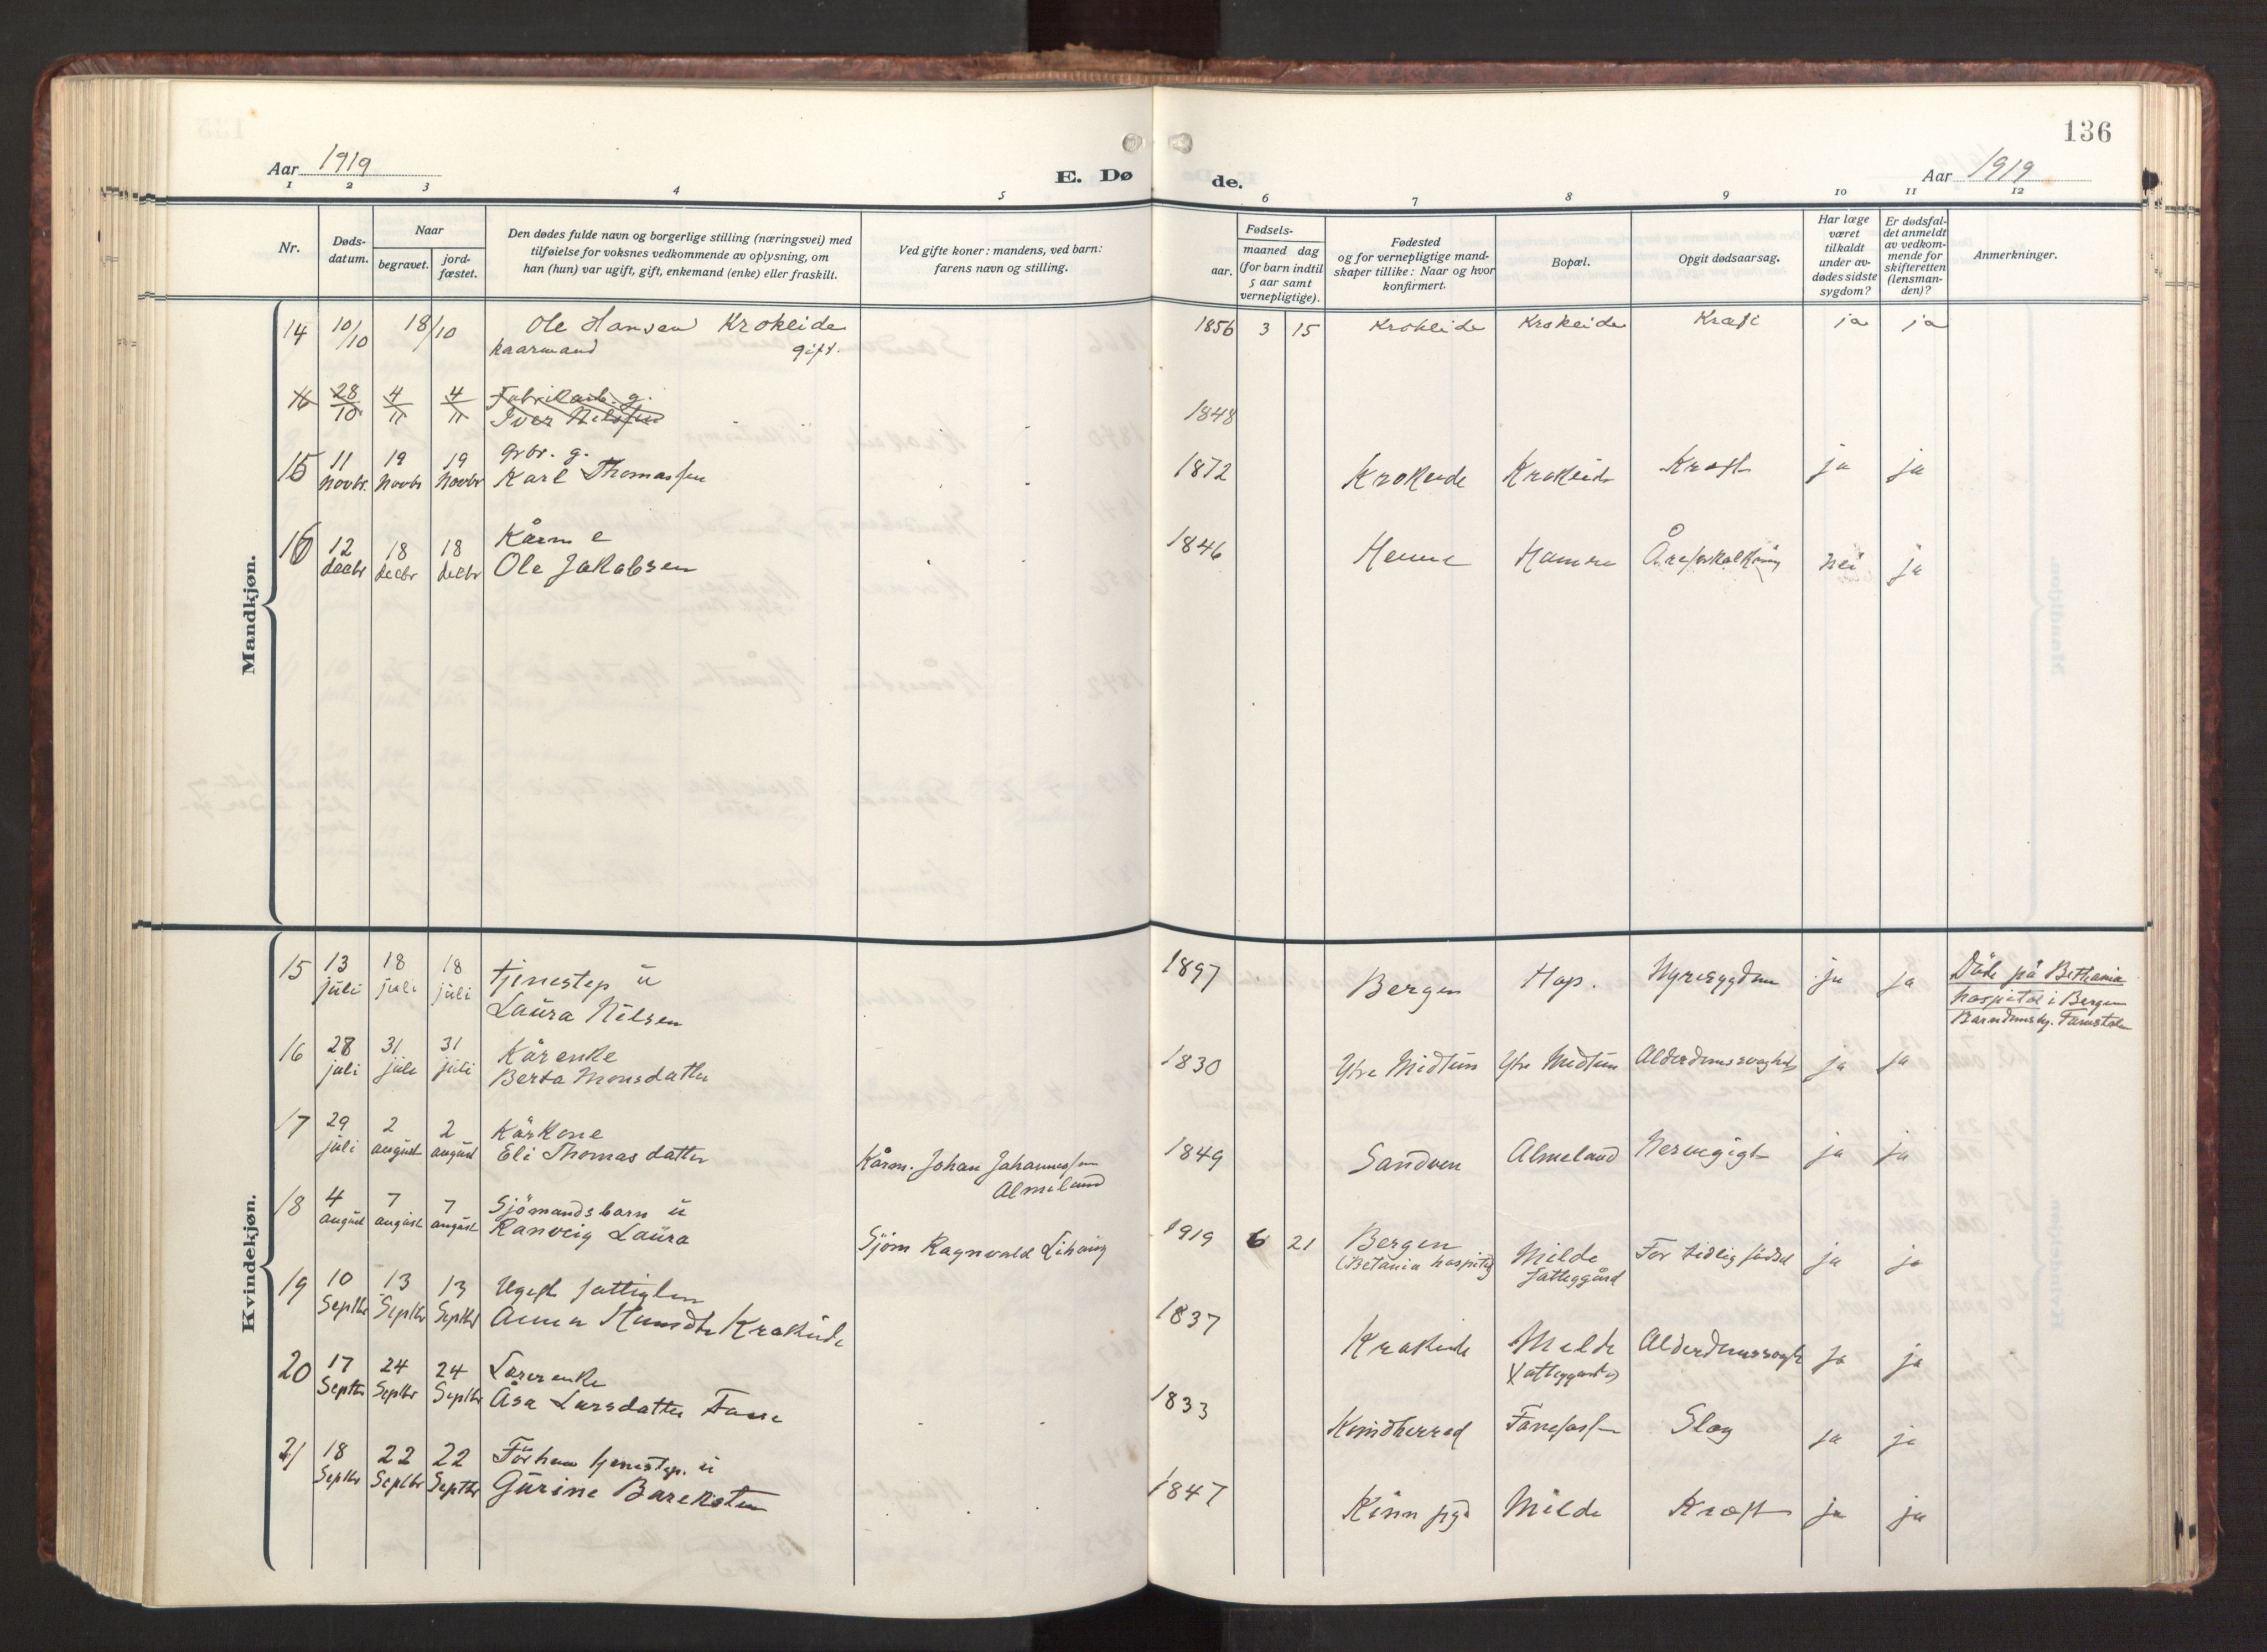 136
Aar 1919
E. Dø
de.
Aar 1919
1 2 3 4 5 6 7 8 9 10 11 12
Nr.
Døds-
datum.
Naar
begravet.
jord-
fæstet.
Den dødes fulde navn og borgerlige stilling (næringsvei) med
tilføielse for voksnes vedkommende av oplysning, om
han (hun) var ugift, gift, enkemand (enke) eller fraskilt.
Ved gifte koner: mandens, ved barn:
farens navn og stilling.
Fødsels-
aar.
maaned dag
(for barn indtil
5 aar samt
vernepligtige).
Fødested
og for vernepligtige mand-
skaper tillike: Naar og hvor
konfirmert.
Bopæl.
Opgit dødsaarsag.
Har læge
været
tilkaldt
under av-
dødes sidste
sygdom?
Er dødsfal-
det anmeldt
av vedkom-
mende for
skifteretten
(lensman-
den)?
Anmerkninger.
Mandkjøn.
14 10/10 18/10 Ole Hansen Krokeide 1856 3 15 Krokeide Krokeide Kræft ja ja
kaarmand gift.
16 28/10 4/11 4/11 Fabrikarb. g.
Iver Nilssen 1848
15 11 novbr. 19 novbr 19 novbr gbr. g.
Karl Thomassen 1872 Krokeide Krokeide Kræft ja ja
16 12 decbr 18 decbr 18 decbr Kårm e
Ole Jakobsen 1846 Hamre Åreforkalkning nei ja
Kvindekjøn.
15 13 juli 18 juli 18 juli tjenestep u
Laura Nilsen 1897 Bergen Hop. Nyresygdom ja ja Døde på Bethania
hospital i Bergen
16 28 juli 31 juli 31 juli Kårenke
Berta Monsdatter 1830 Ytre Midtun Ytre Midtun Alderdomssvaghet ja ja
17 29 juli 2 august 2 august Kårkone
Eli Thomasdatter Kårm. Johan Johannessen
Almeland 1849 Sandven Almeland Nervegigt ja ja
18 4 august 7 august 7 august Sjömandsbarn u
Ranveig Laura Sjöm Ragnvald 1919 6 21 Bergen
(Betania hospital) Milde
fattiggård For tidlig födsel ja ja
19 10 Septbr 13 Septbr 13 Septbr Ugift fattiglem
Anna Krokeide 1837 Krokeide Milde
(fattiggård) Alderdomssvagh ja ja
20 17 Septbr 24 Septbr 24 Septbr Lærerenke
Åsa Larsdatter Fane 1833 Kvindherred Slag ja ja
21 18 Septbr 22 Septbr 22 Septbr Förhen tjenestep. u
Gurine Bareksten 1847 Kinn Milde Kræft ja ja